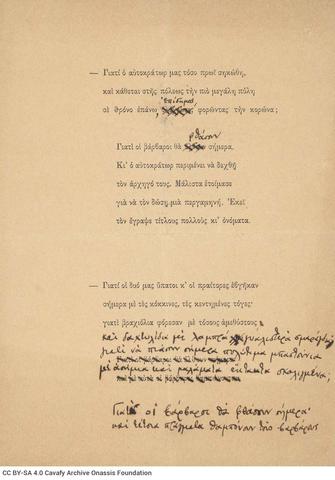 — Γιατί ὁ αὐτοκράτωρ μας τόσο πρωῒ σηκώθη,
καὶ κάθεται στῆς πόλεως τὴν πιὸ μεγάλη πύλη
ἐπίσημος,
σὲ θρόνο ἐπάνω, φορῶντας τὴν κορώνα;
φθάσουν
Γιατὶ οἱ βάρβαροι θὰ σήμερα.
Κι' ὁ αὐτοκράτωρ περιμένει νὰ δεχθῇ
τὸν ἀρχηγό τους. Μάλιστα ἑτοίμασε
γιὰ νὰ τὸν δώσῃ μιὰ περγαμηνή. Ἐκεῖ
τὸν ἔγραψε τίτλους πολλοὺς κι' ὀνόματα.
— Γιατί οἱ δυό μας ὕπατοι κ' οἱ πραίτορες ἐβγῆκαν
σήμερα μὲ τὲς κόκκινες, τὲς κεντημένες τόγες·
γιατὶ βραχιόλια φόρεσαν μὲ τόσους ἀμεθύστους
καὶ δακτυλίδια μὲ λαμπρὰ γυαλιστερὰ σμαράγδια·
γιατὶ νὰ πιάσουν σήμερα πολύτιμα μπαστούνια
μὲ ἀσήμια καὶ μαλάματα ἔκτακτα σκαλισμένα;
Γιατὶ οἱ βάρβαροι θὰ φθάσουν σήμερα·
καὶ τέτοια πράγματα θαμπόνουν τοὺς βαρβάρους
CC BY-SA 4.0 Cavafy Archive Onassis Foundation